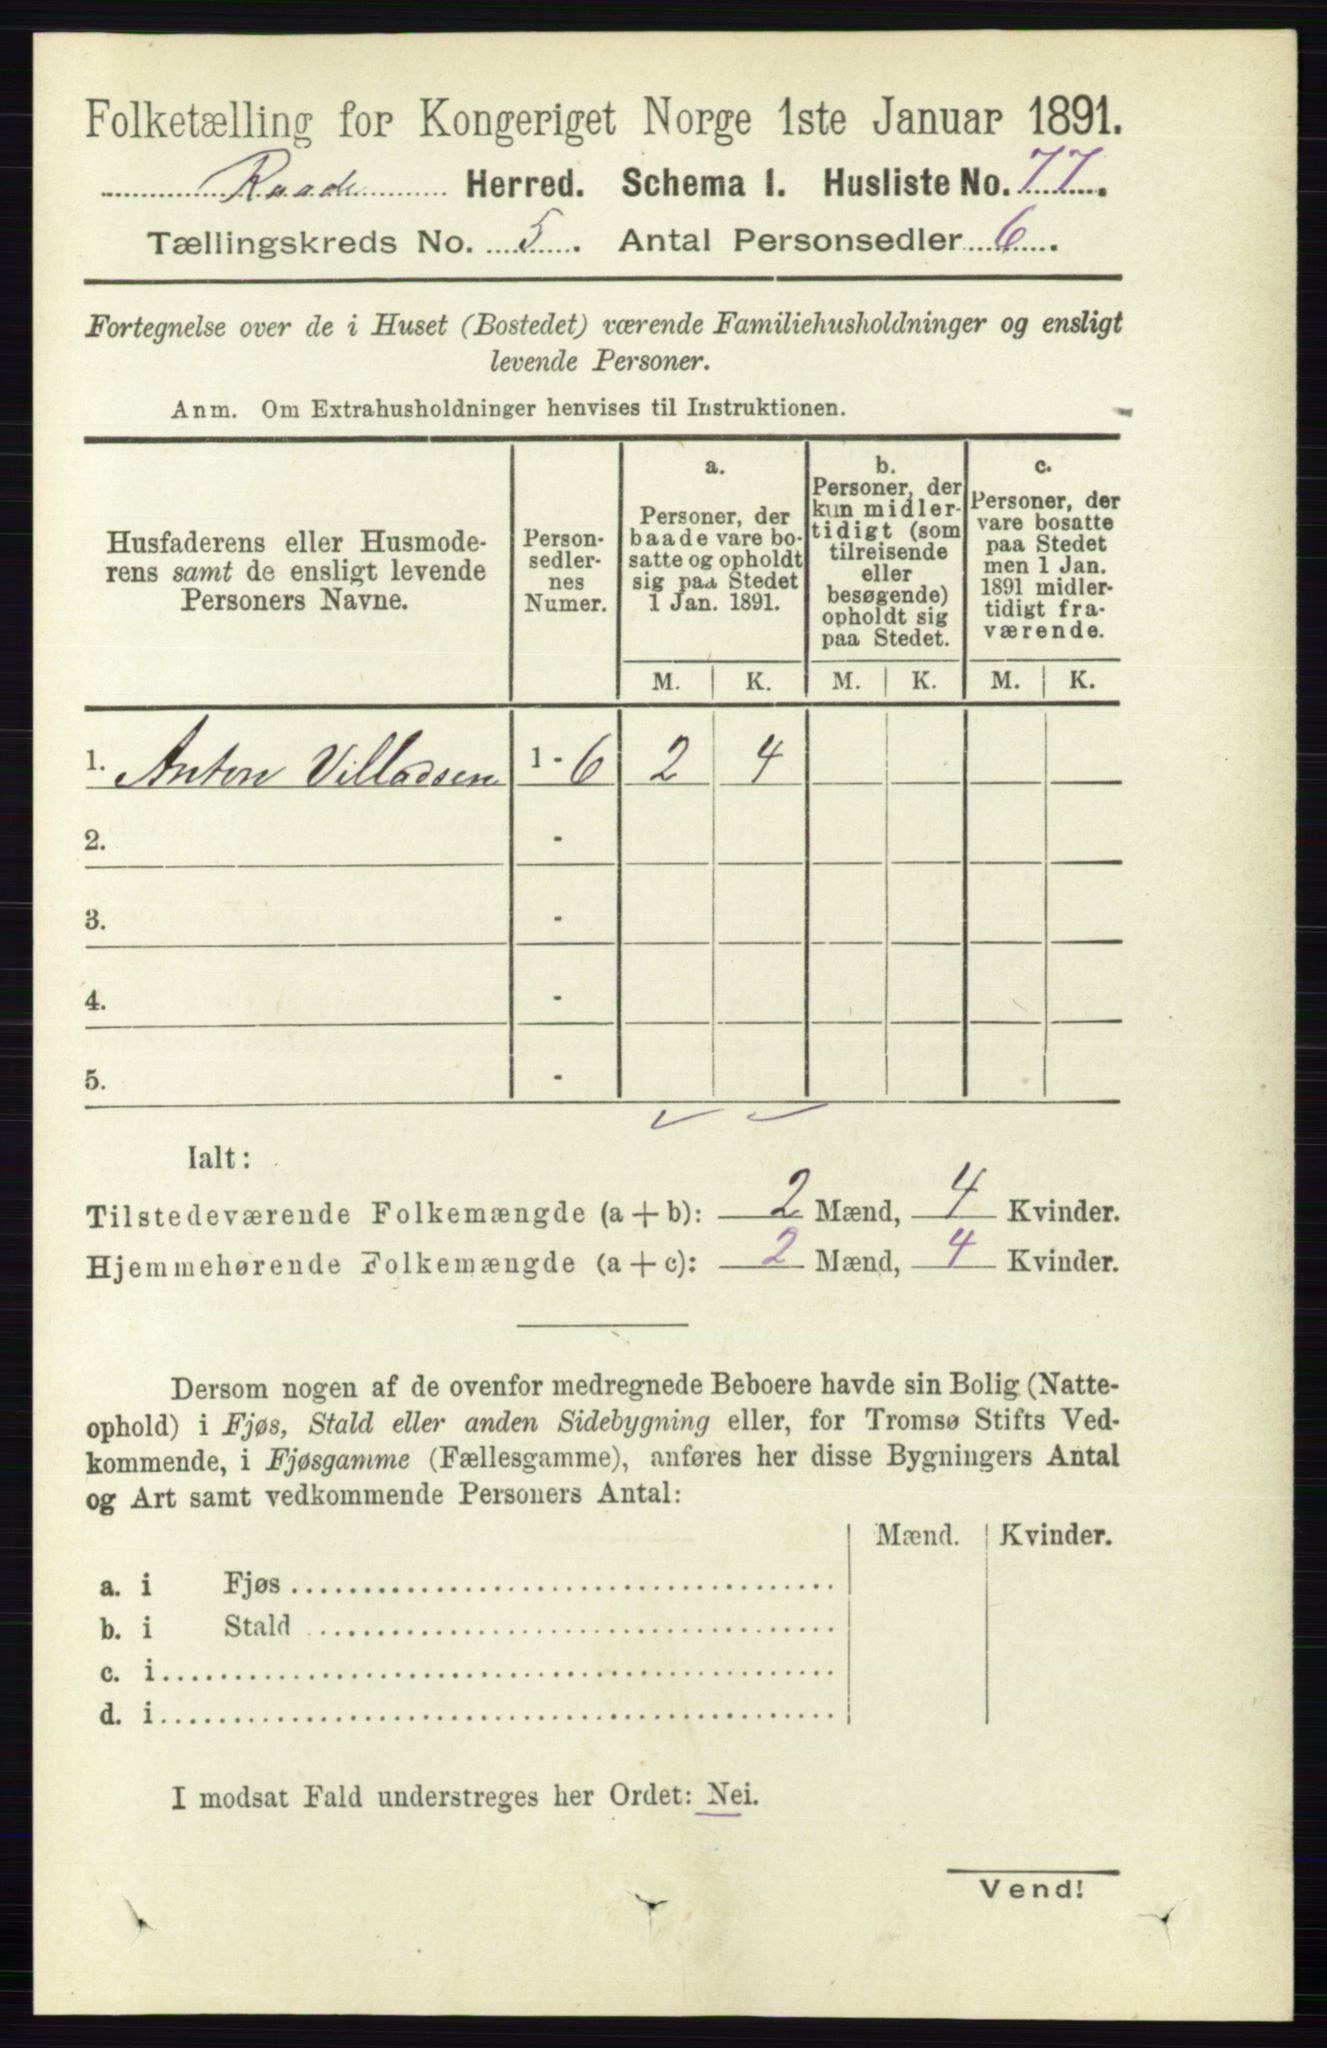 Folketælling for Kongeriget Norge 1ste Januar 1891.
Raade Herred. Schema 1. Husliste No. 77.
Tællingskreds No. 5. Antal Personsedler 6.
Fortegnelse over de i Huset (Bostedet) værende Familiehusholdninger og ensligt
levende Personer.
Anm. Om Extrahusholdninger henvises til Instruktionen.
Husfaderens eller Husmode-
rens samt de ensligt levende
Personers Navne.
Person-
sedler-
nes
Numer.
a.
Personer, der
baade vare bo-
satte og opholdt
sig paa Stedet
1 Jan. 1891.
b.
Personer, der
kun midler-
tidigt (som
tilreisende
eller
besøgende)
opholdt sig
paa Stedet.
c.
Personer, der
vare bosatte
paa Stedet
men 1 Jan.
1891 midler-
tidigt fra-
værende.
M. K. M. K. M. K.
1. Anton Villadsen 1 - 6 2 4
2. -
3. -
4. -
5. -
Ialt:
Tilstedeværende Folkemængde (a + b): 2 Mænd, 4 Kvinder.
Hjemmehørende Folkemængde (a + c): 2 Mænd, 4 Kvinder.
Dersom nogen af de ovenfor medregnede Beboere havde sin Bolig (Natte-
ophold) i Fjøs, Stald eller anden Sidebygning eller, for Tromsø Stifts Ved-
kommende, i Fjøsgamme (Fællesgamme), anføres her disse Bygningers Antal
og Art samt vedkommende Personers Antal:
Mænd. Kvinder.
a. i Fjøs
b. i Stald
c. i
d. i
I modsat Fald understreges her Ordet: Nei.
Vend!